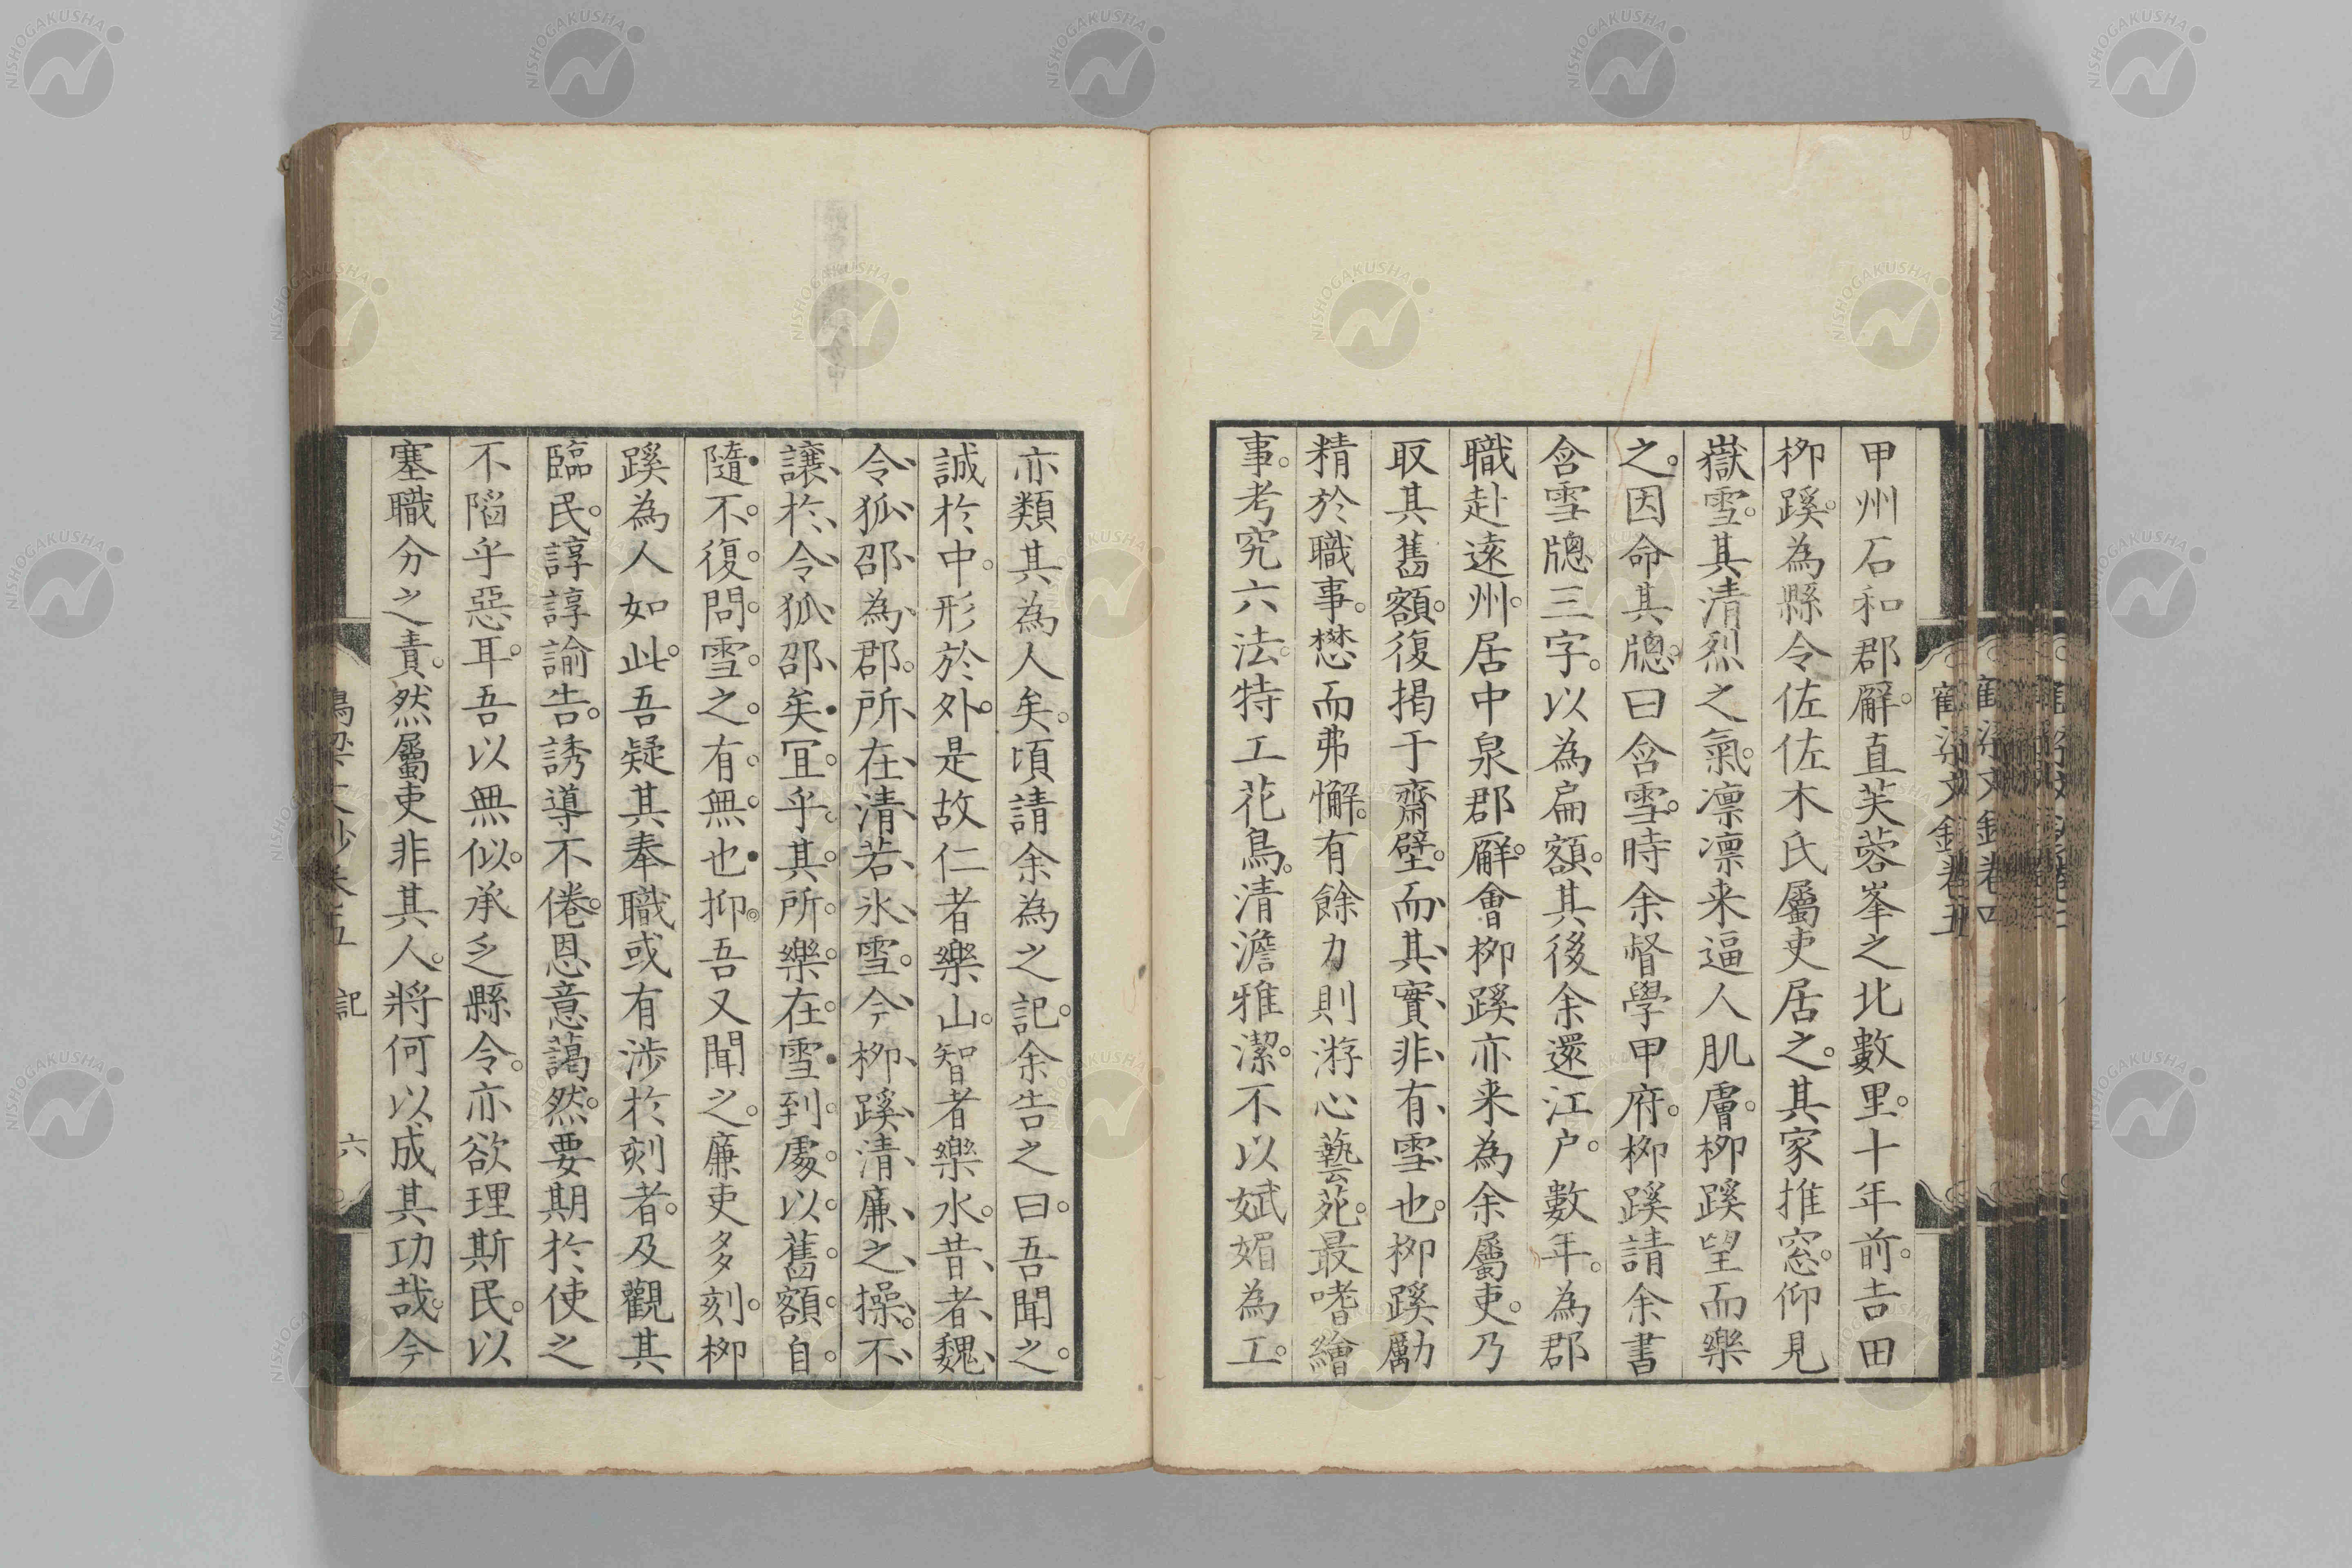 甲州石和郡廨。直芙蓉峯之北數里。十年前。吉田
栁蹊。為縣令佐佐木氏屬吏居之。其家推窓。仰見
嶽雪。其清烈之氣。凛凛来逼人肌膚。栁蹊望而樂
之。因命其牕。曰含雪。時余督學甲府。栁蹊請余書
含雪牕三字。以為扁額。其後余還江戸。數年。為郡
職赴遠州。居中泉郡廨。會栁蹊亦来為余屬吏。乃
取其舊額。復掲于齋壁。而其實非有雪也。栁蹊勵
精於職事。懋而弗懈。有餘力則游心藝苑。最嗜繪
事。考究六法。特工花鳥。清澹雅潔。不以娬媚為工。
亦類其為人矣。頃請余為之記。余告之曰。吾聞之。
誠於中。形於外。是故仁者樂山。智者樂水。昔者魏
令狐邵為郡。所在清若氷雪。今栁蹊清廉之操。不
讓於令狐邵矣。宜乎其所樂在雪。到處以舊額自
隨。不復問雪之有無也。抑吾又聞之。廉吏多刻。栁
蹊為人如此。吾疑其奉職或有涉於刻者。及觀其
臨民。諄諄諭告。誘導不倦。恩意藹然。要期於使之
不陷乎惡耳。吾以無似。承乏縣令。亦欲理斯民。以
塞職分之責。然屬吏非其人。將何以成其功哉。今
記
六
NISHOGAKUSHA